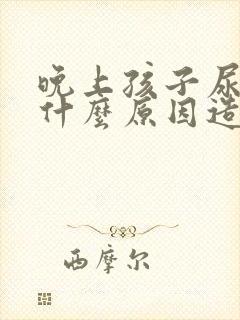 晚上孩子尿
什麼原因造
西摩尔